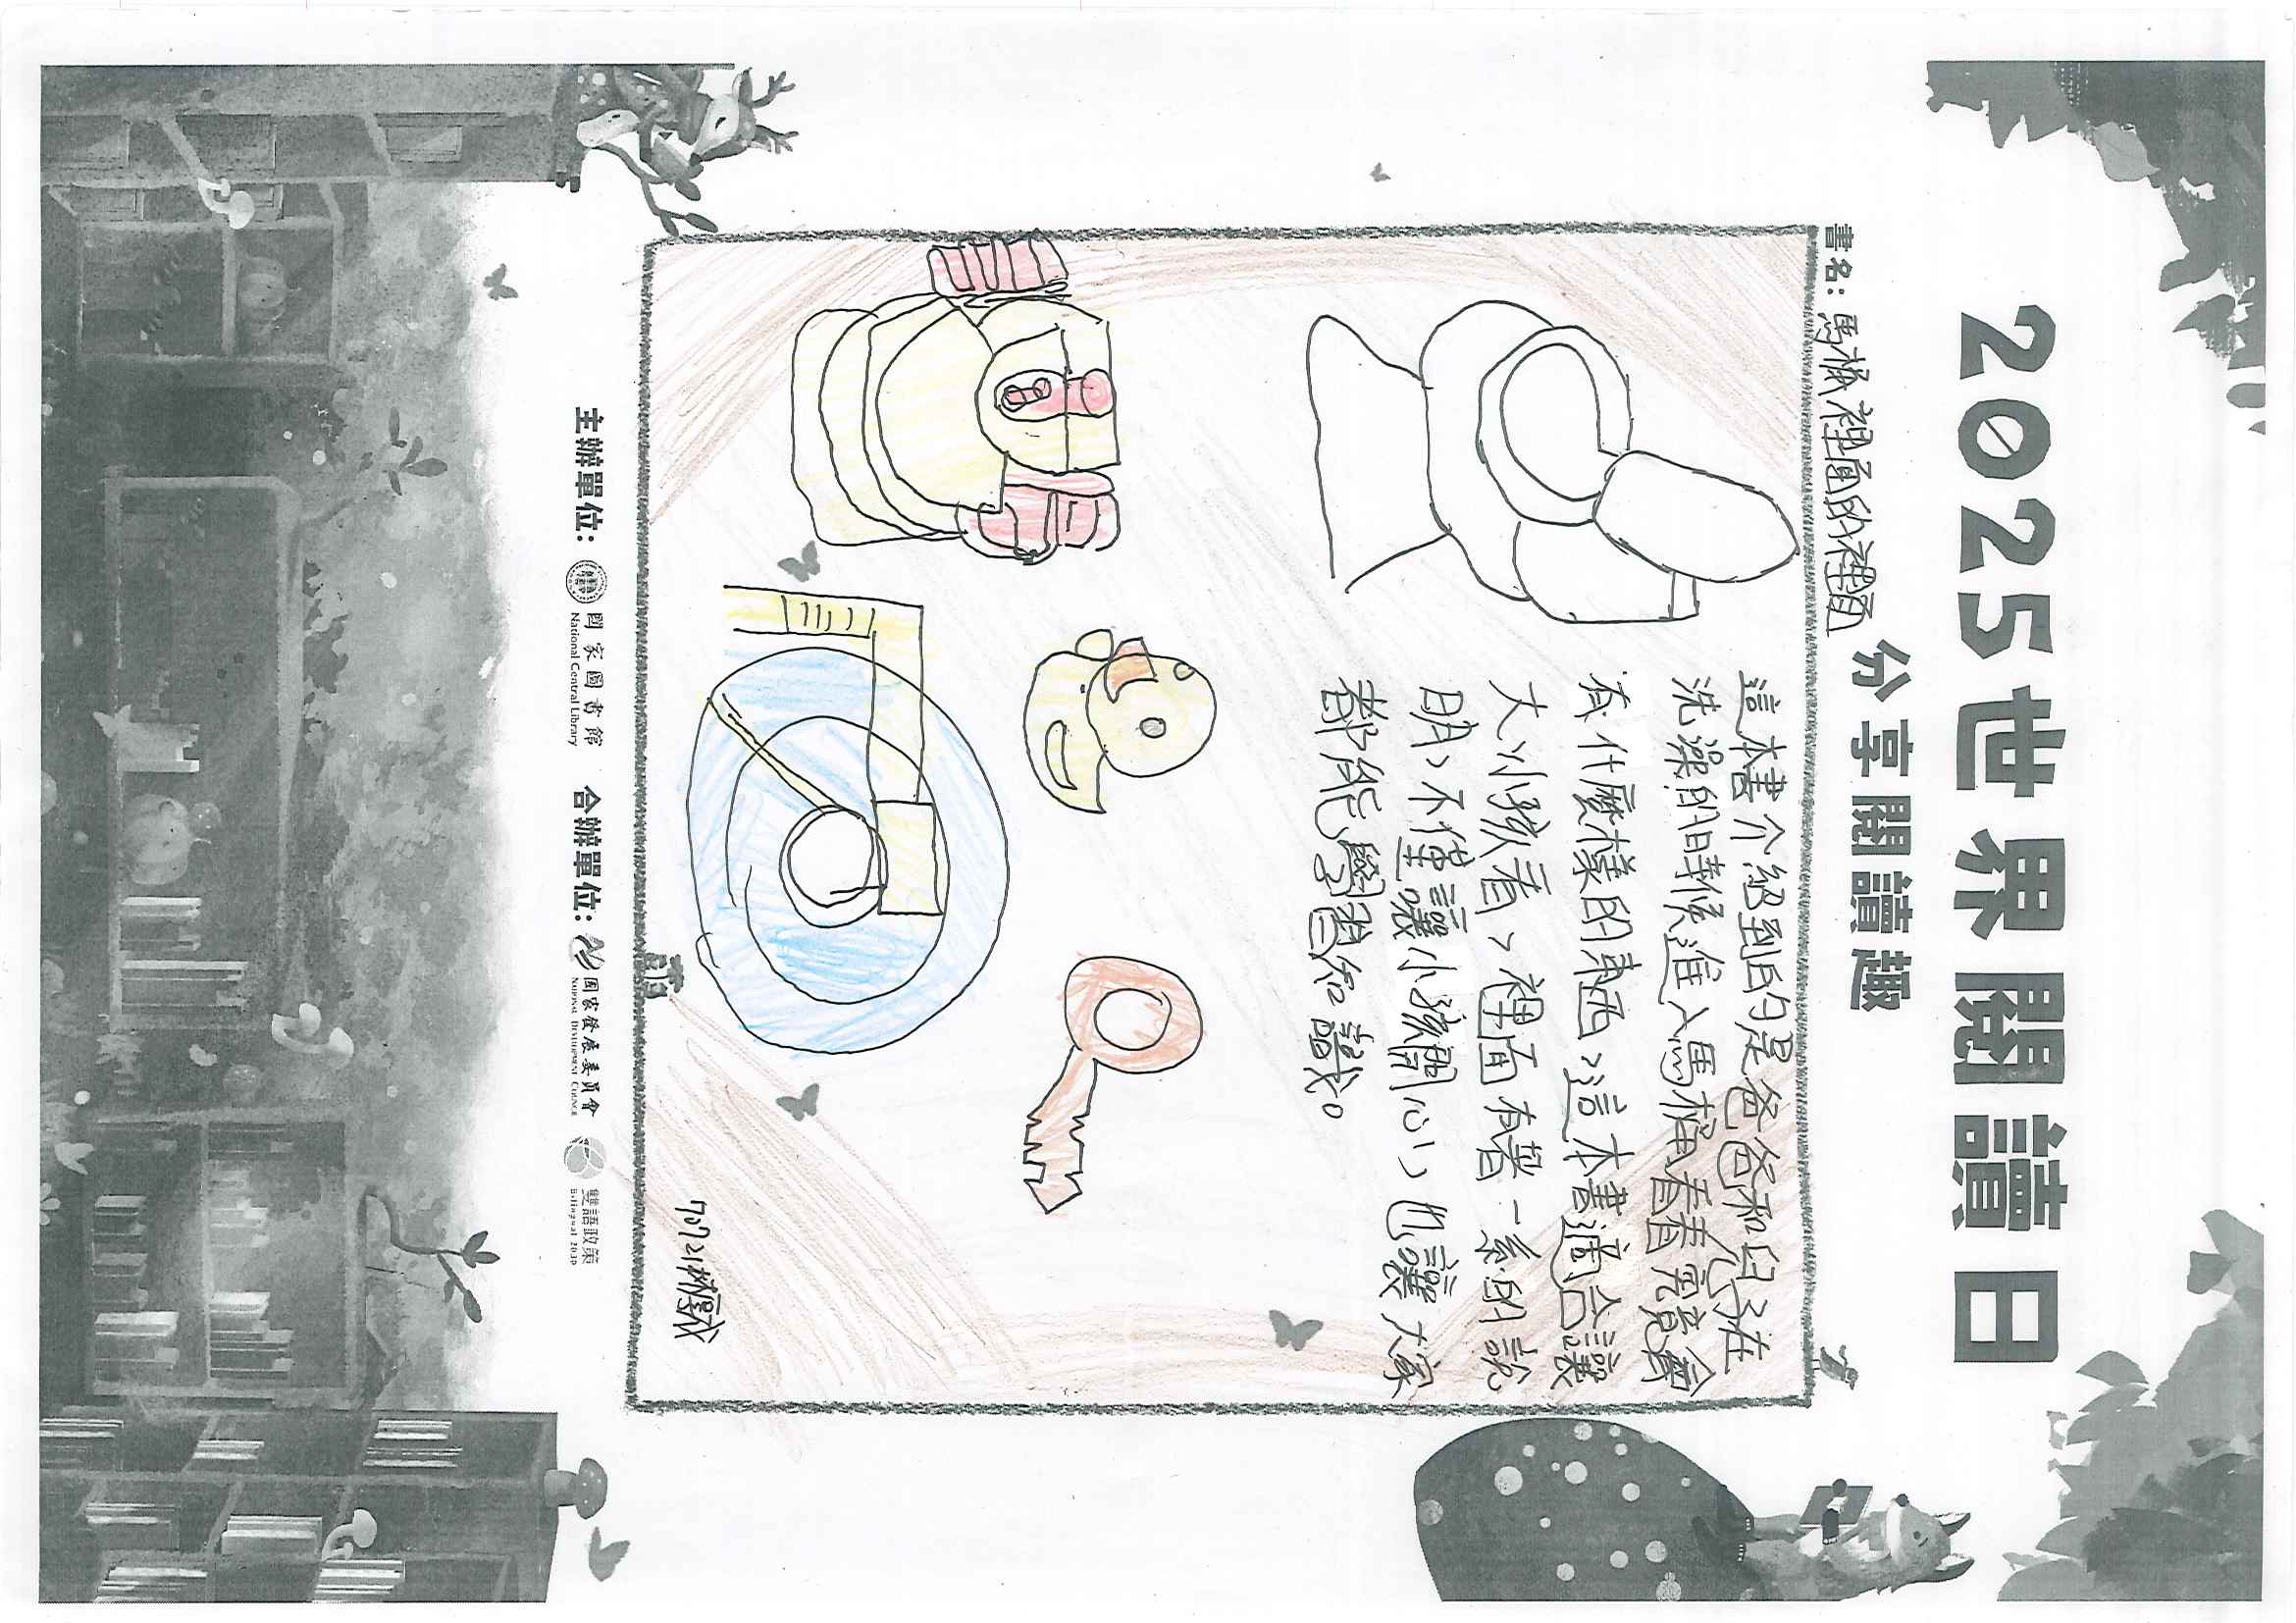 2025世界閱讀日
分享閱讀趣
書名：馬桶裡面的裡面
這本書介紹到的是爸爸和兒子在
洗澡的時候進入馬桶看看究竟會
有什麼樣的東西，這本書適合讓
大小孩看，裡面有著一系的說
明，不僅讓小孩開心，也讓大家
都能學習到知識。
70721
主辦單位：
國家圖書館
National Central Library
合辦單位：
國家發展委員會
National Development Council
雙語政策
Bilingual 2030